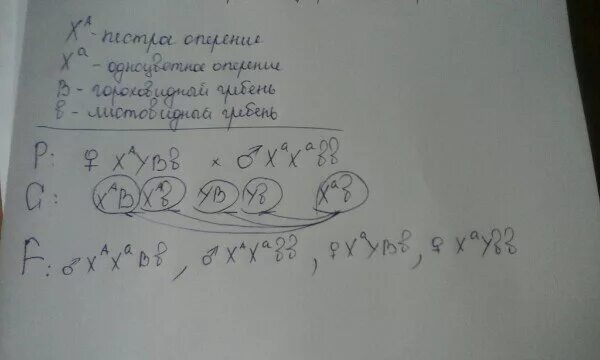 X^A - пестрое оперение
X^a - одноцветное оперение
B - гороховидный гребень
b - листовидный гребень
P: ♀ X^A Y B b × ♂ X^a X^a b b
G: X^A B X^A b Y B Y b X^a b
F: ♂ X^A X^a B b , ♂ X^A X^a b b , ♀ X^a Y B b , ♀ X^a Y b b